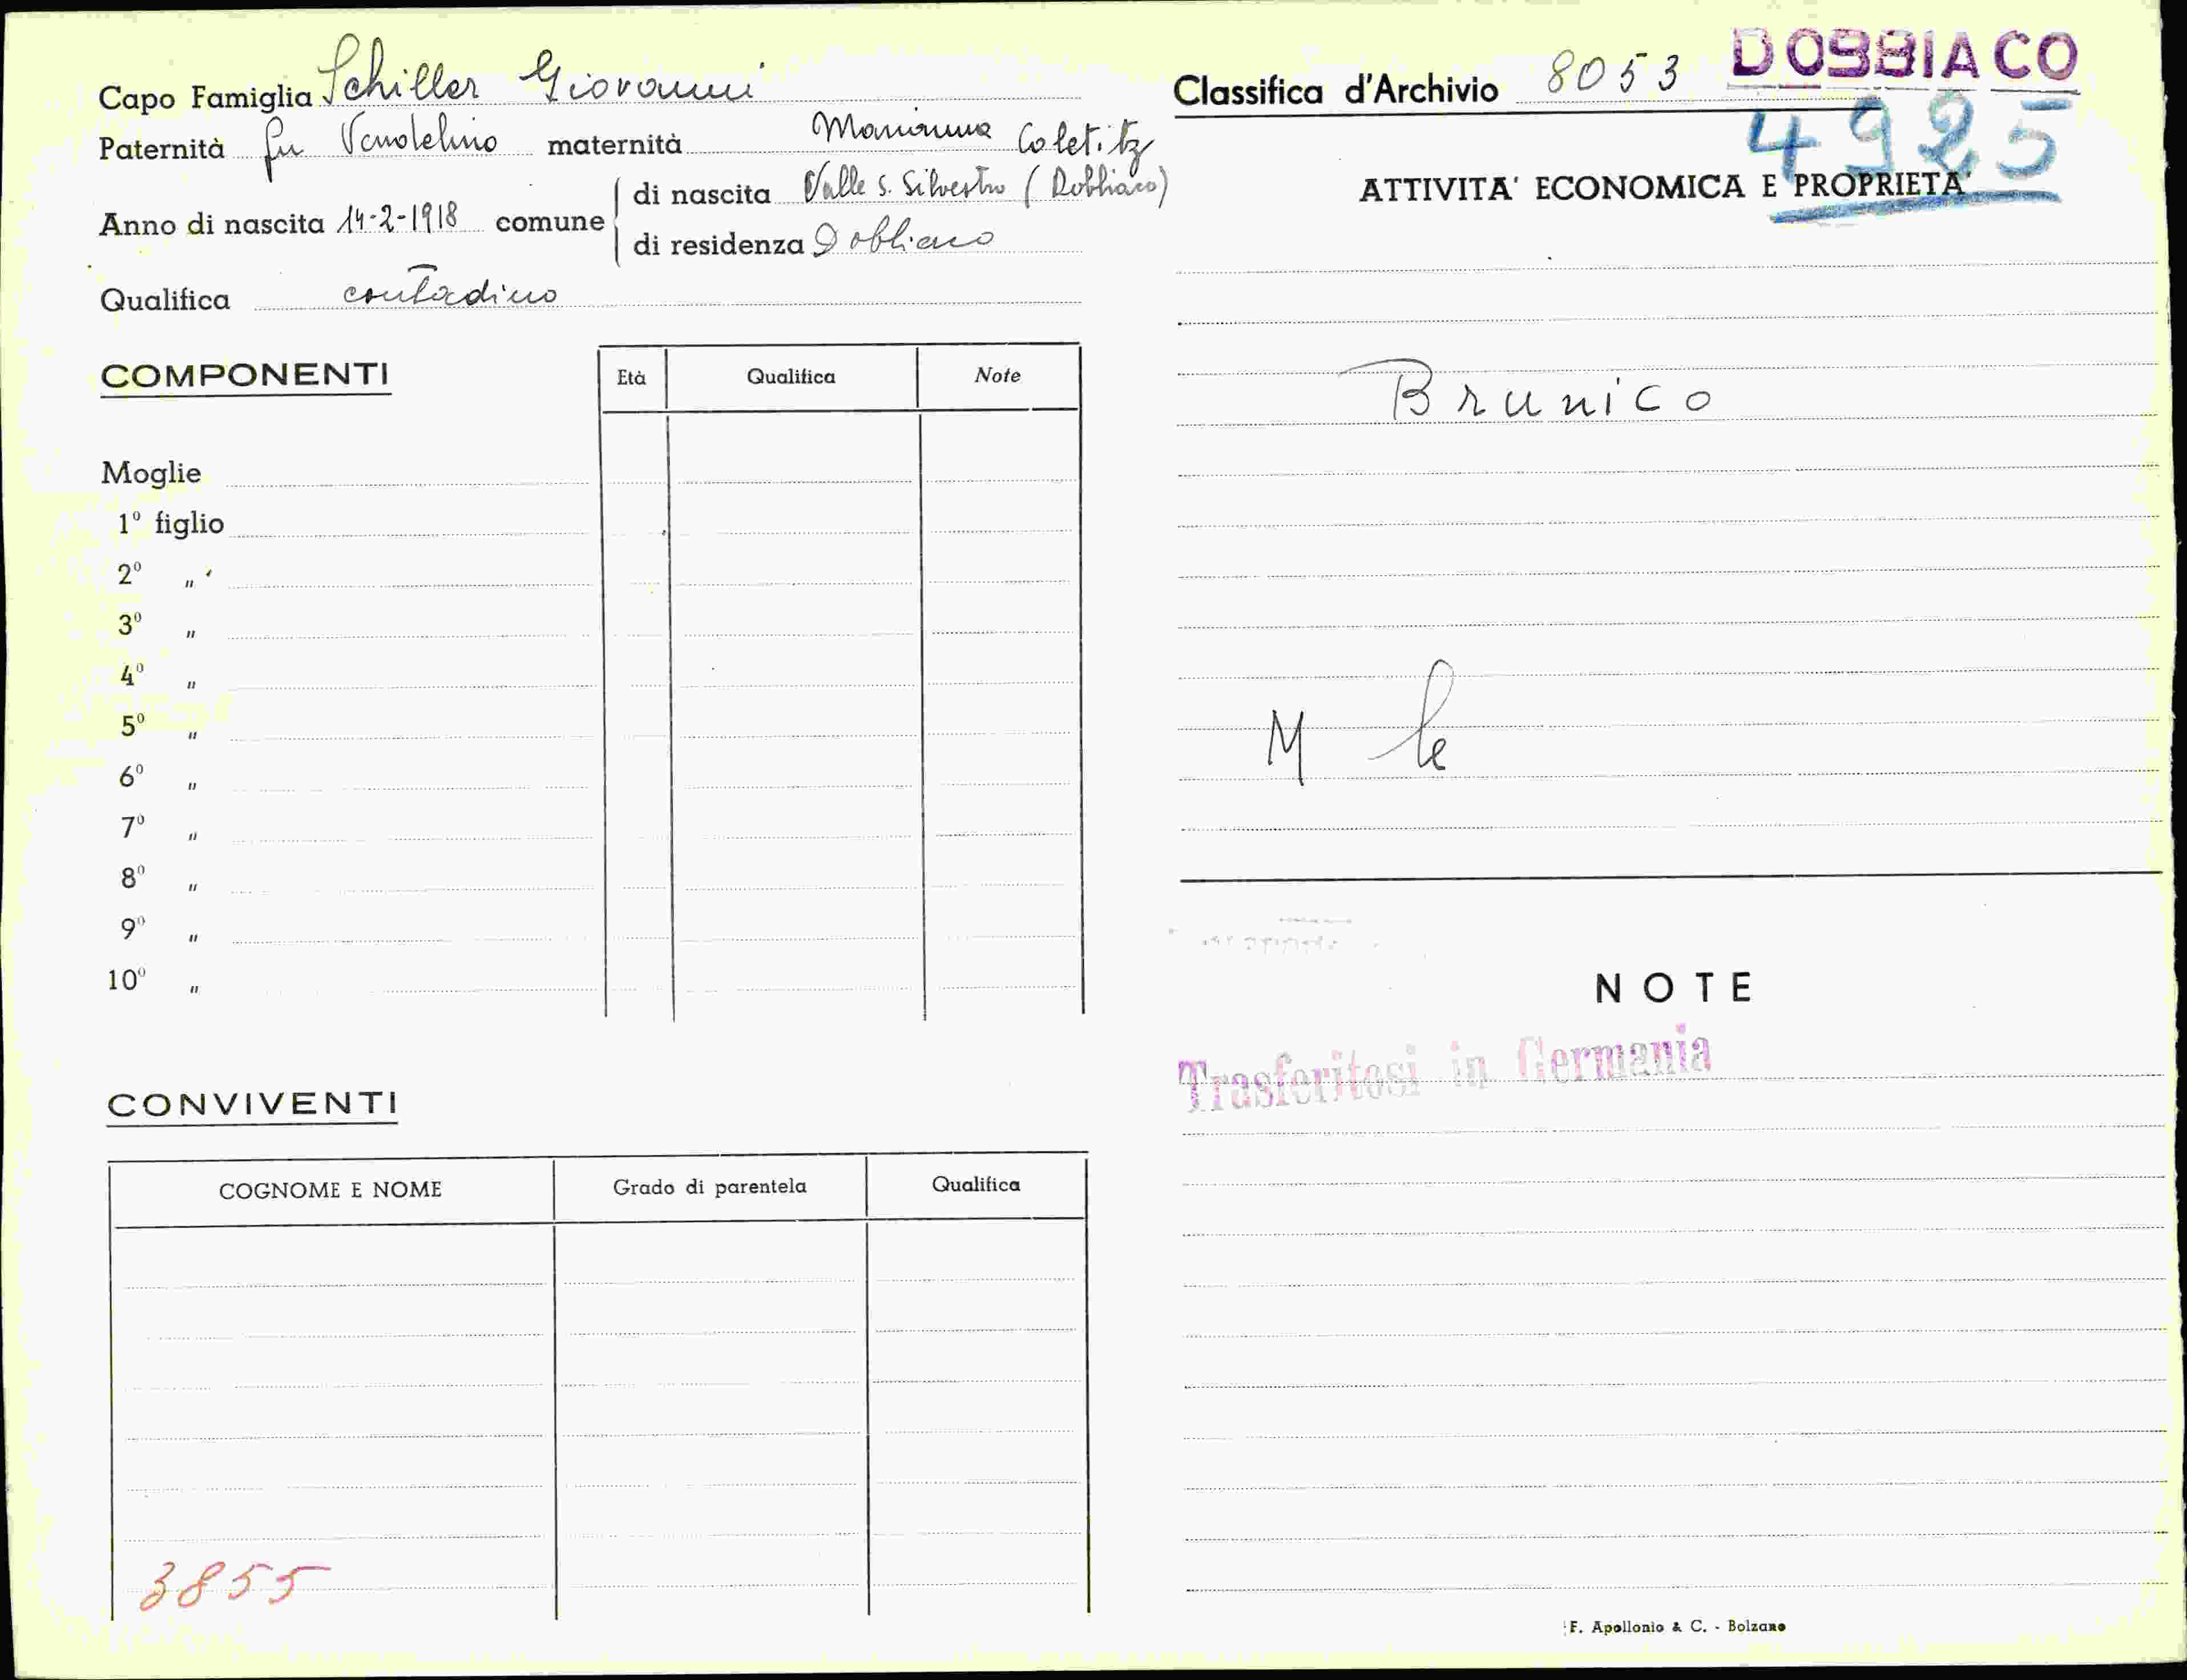 Capo Famiglia Schiller Giovanni
Paternità fu Vandelino maternità Marianna Coletitz
Anno di nascita 14-2-1918 comune
di nascita Valle S. Silvestro (Dobbiaco)
di residenza Dobbiaco
Qualifica contadino
COMPONENTI
Età Qualifica Note
Moglie
1º figlio
2º "
3º "
4º "
5º "
6º "
7º "
8º "
9º "
10º "
CONVIVENTI
COGNOME E NOME Grado di parentela Qualifica
3855
Classifica d'Archivio 8053 DOBBIACO
4925
ATTIVITA' ECONOMICA E PROPRIETA'
Brunico
M le
NOTE
Trasferitosi in Germania
F. Apollonio & C. - Bolzano